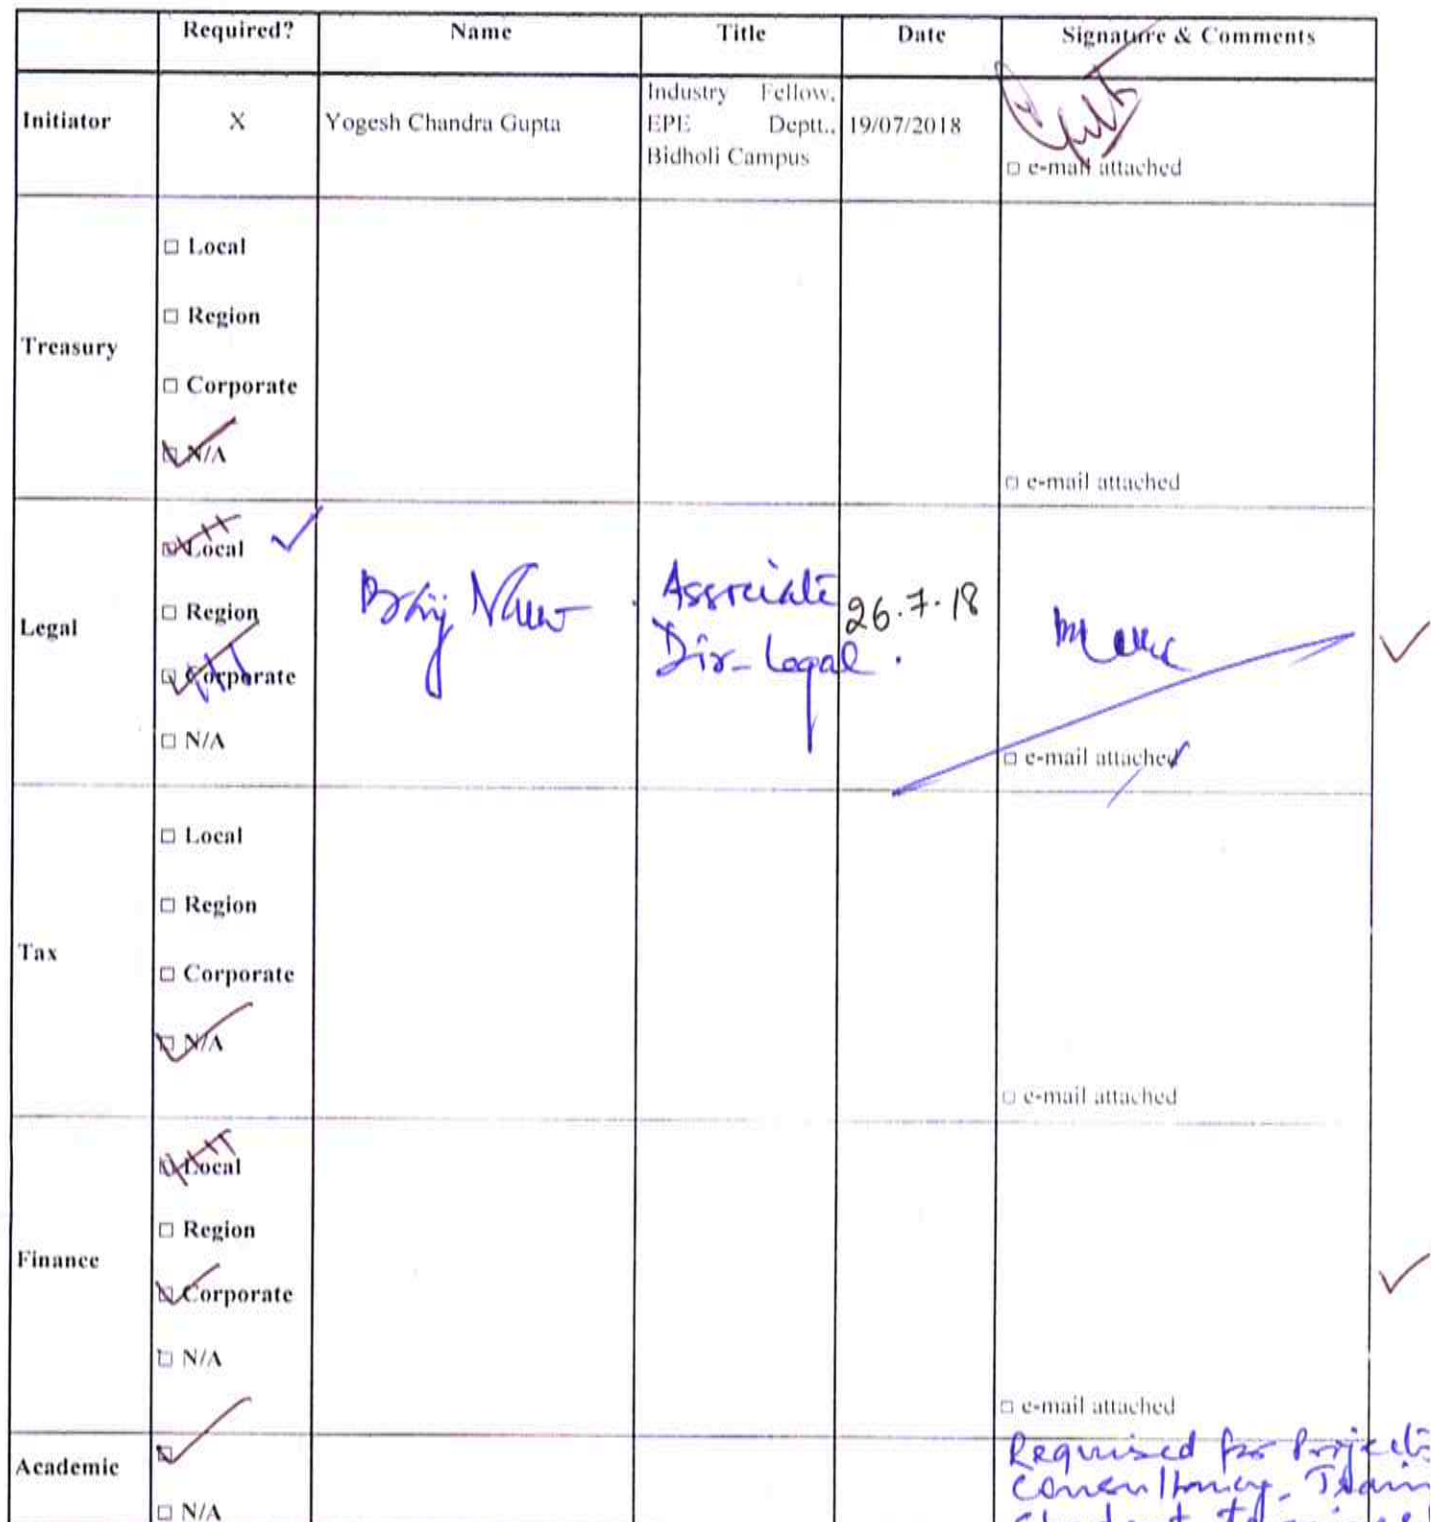 Required? Name Title Date Signature & Comments
Initiator X Yogesh Chandra Gupta Industry Fellow, EPE Deptt., Bidholi Campus 19/07/2018
□ e-mail attached
Treasury
□ Local
□ Region
□ Corporate
□ N/A
□ e-mail attached
Legal
□ Local
□ Region
□ Corporate
□ N/A
Associate
Dir- Legal.
26.7.18
□ e-mail attached
Tax
□ Local
□ Region
□ Corporate
□ N/A
□ e-mail attached
Finance
□ Local
□ Region
□ Corporate
□ N/A
□ e-mail attached
Academic
□
□ N/A
Required for Projects
Consultancy, Train
Student